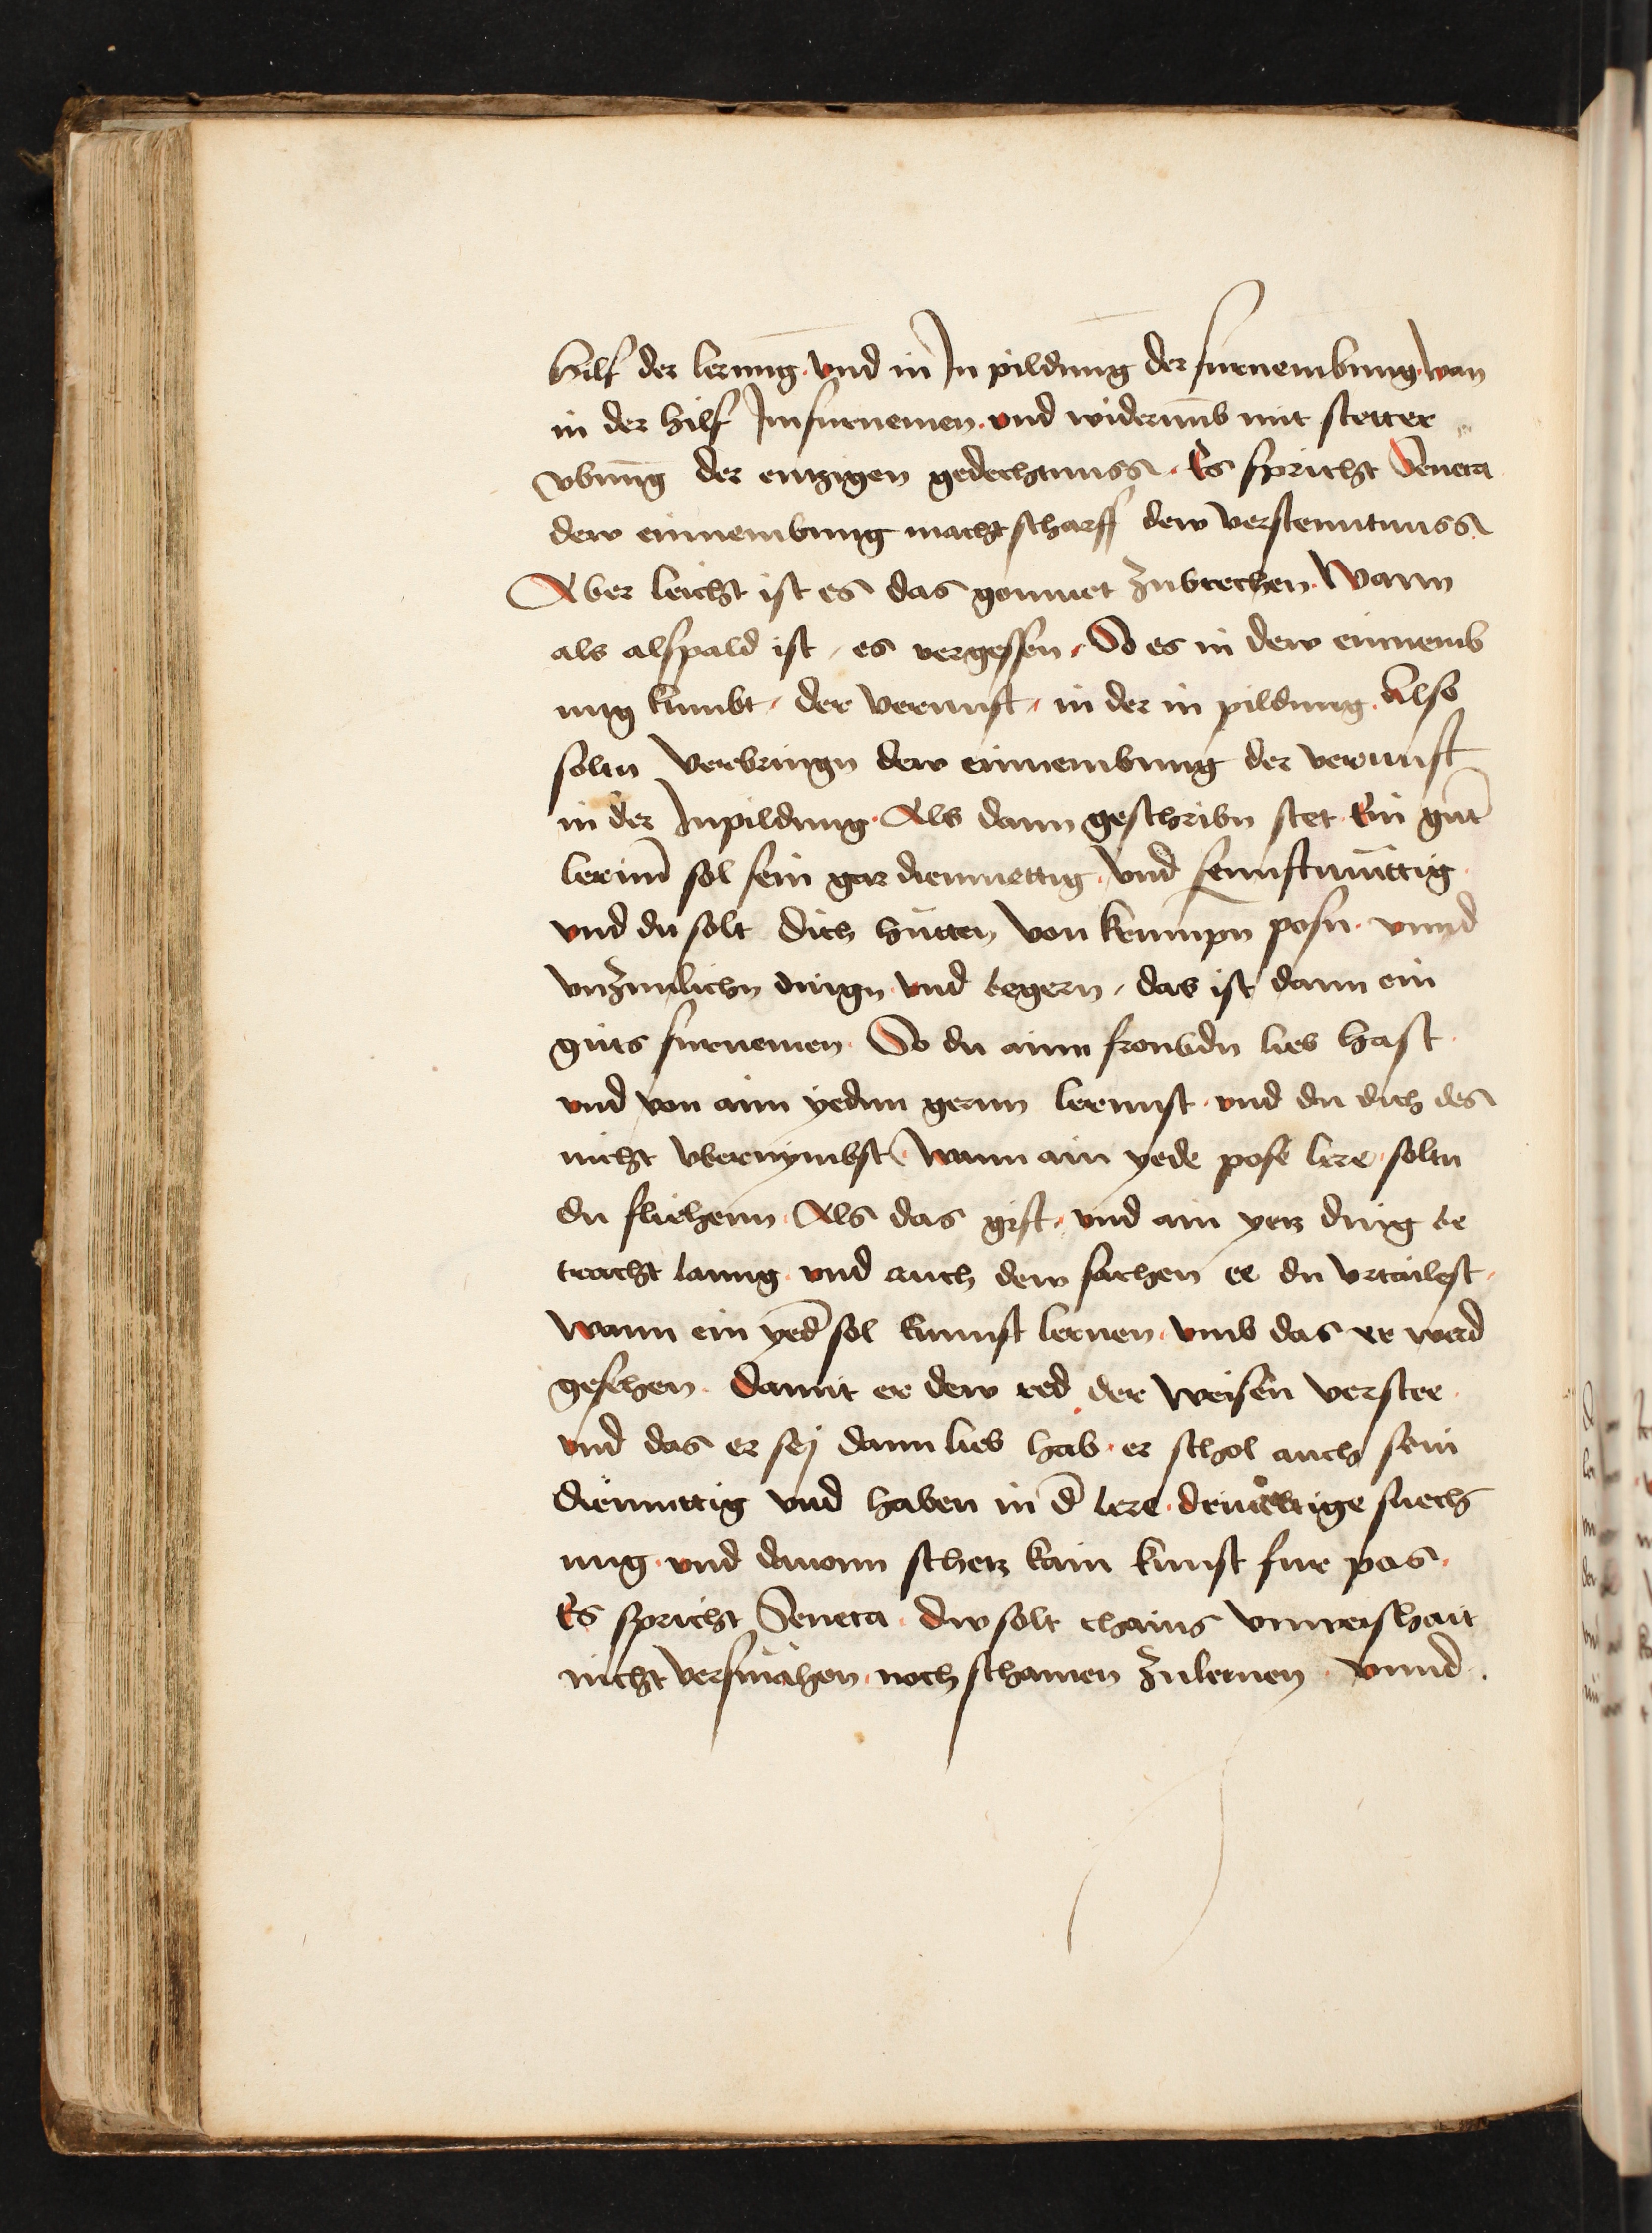 hilf der lernūg. vnd in In pildung der furnembung. wan
in der hilf Imfurnemen. vnd widerumb mit stetter
vbung der eintzigen gedechtnuss. Es spricht Seneca
dew einnembung macht scharff dew verstenntnuss
Aber leicht ist es das zubrechen. Wann
als alspald ist, es vergessen. So es in dew einnemb
ung kumbt, der vernunft, in der in pildung. Also
soltu verbringn dew einnembung der vernunft
in der Inpildung. Als dann geschribn stet Ein gut̄
sol sein gar diemuettig. vnd sennftmuttig
vnd du solt dich hütten von posn. vnnd
vnzimlichn dingn vnd begern, das ist dann ein
guts furnemen. So du ainn fromdn lieb hast
vnd von aim yedmi gernn lernnst. vnd du dich des
nicht vbernÿmbst. Wann ain yede pose lere. soltu
du fliehenn. Als das gift. vnd ain yetz ding be
tracht lanng. vnd auch dew sachen ee du vrtailest.
Wann ein yed̄ sol kunnst lernen. vmb das er werd
gesehen. damit er dew red der weisen verstee
vnd das er sej dann lieb hab. er schol auch sein
diemuttig vnd haben in d̄ lere. suech
ung. vnd dauonn schetz kain kunst fur pas.
Es spricht Seneca. dw solt chains vnweishait
nicht versmähen. noch schamen zulernen. vnnd.